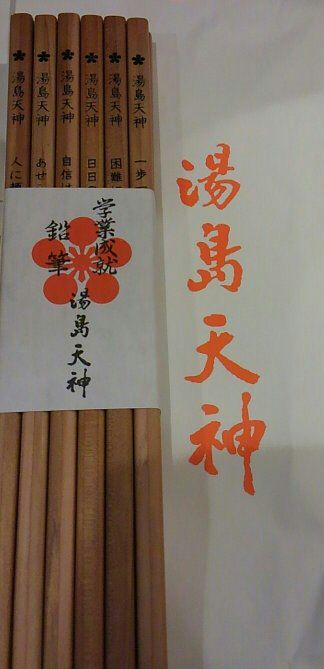 湯島天神
一歩
湯島天神
困難に
湯島天神
日日の
湯島天神
自信は
湯島天神
あせ
湯島天神
人に
学業成就
鉛筆
湯島天神
湯島天神